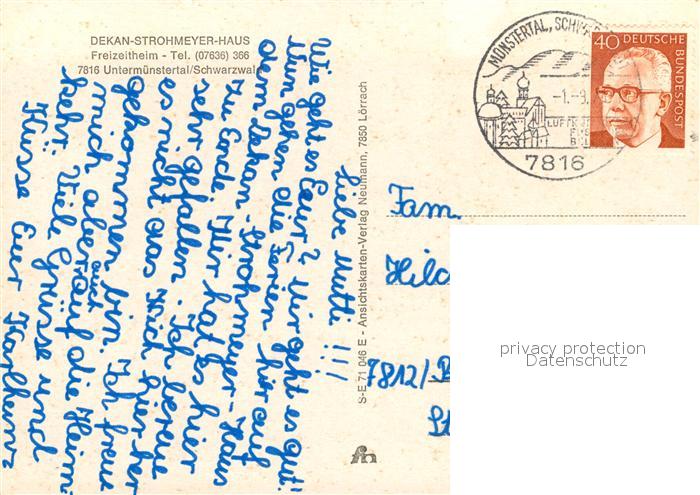 DEKAN-STROHMEYER-HAUS
Freizeitheim - Tel. (07636) 366
7816 Untermünstertal/Schwarzwald
Liebe Mutti!!!
Wie geht es Euch? Mir geht es gut!
Nun gehen die Ferien hier auf
dem Dekan-Strohmeyer-Haus
zu Ende. Mir hat es hier
sehr gefallen. Ich bereue
es nicht das ich hierher
gekommen bin. Ich freue
mich aber auch auf die Heim-
kehr. Viele Grüsse und
Küsse Euer Karlheinz
S-E 71 046 E - Ansichtskarten-Verlag Neumann, 7850 Lörrach
MÜNSTERTAL, SCHW
-1.-8.
LUFT
7816
40 DEUTSCHE
BUNDESPOST
Fam.
7812/B
privacy protection
Datenschutz